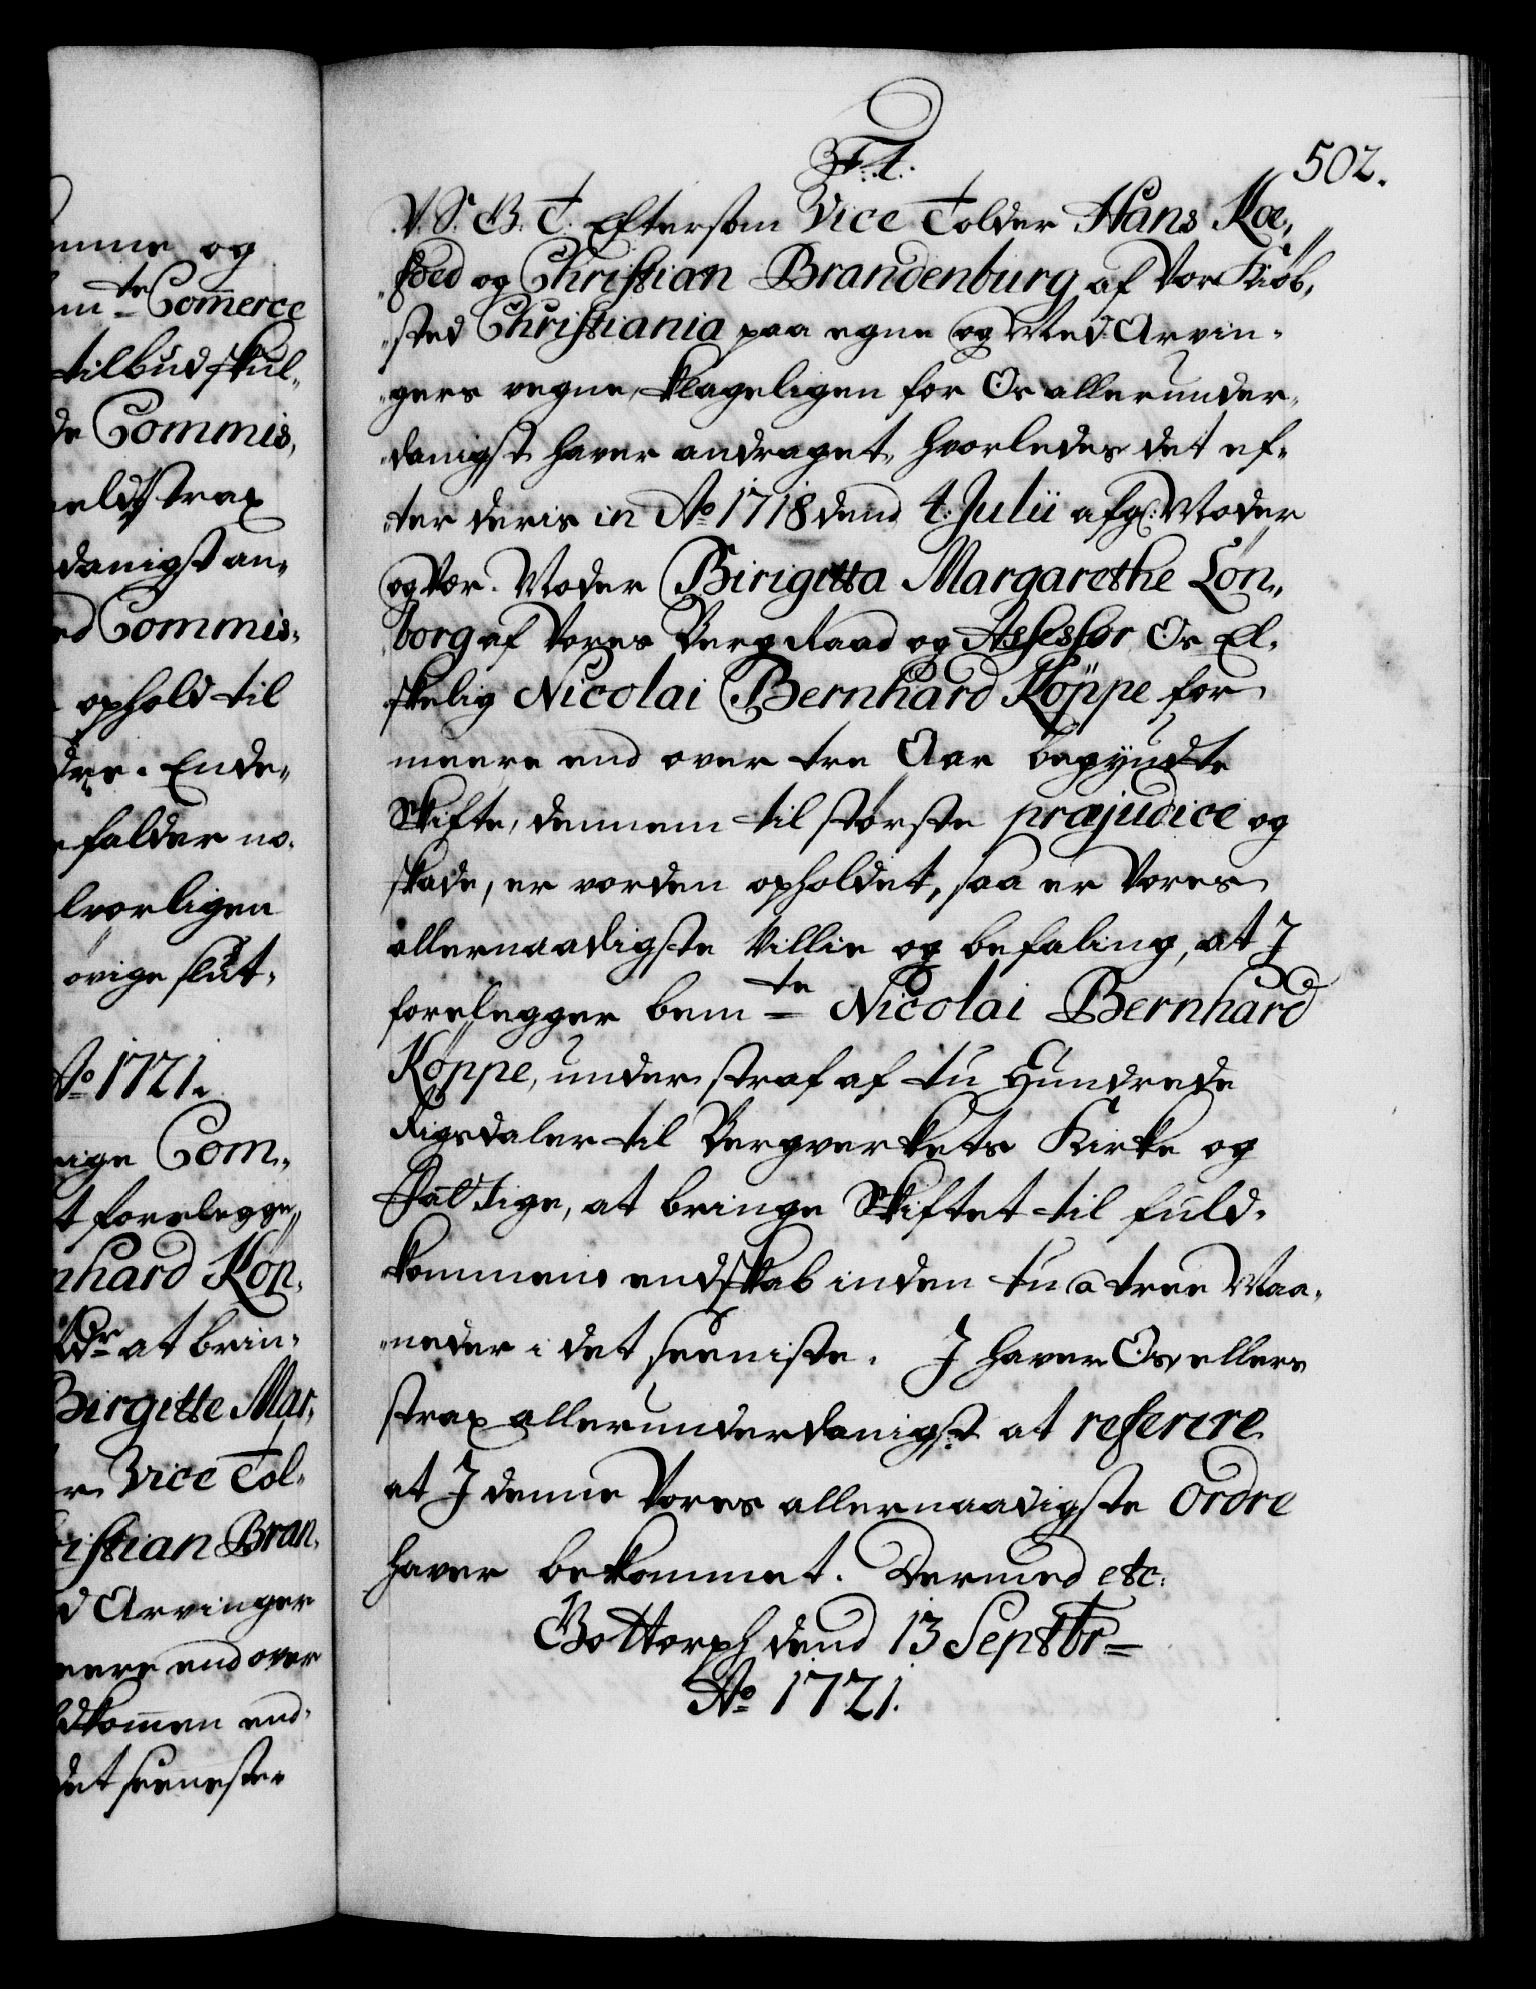 enme og
mte Comerce
tilbud skul-
de Commis,
danigst an-
ed Commis-
ophold til
dre. Ende-
falder no-
lvorligen
övige slut-
Ao 1721.
nige Com-
t forelegge
nhard Köp,
at brin-
Birgitte Mar,
r Vice Tol-
istian Bran,
d Arvinger
eere end over
ldkomen end-
det seeneste
F. 4.
502.
V. S. G. T. Eftersom Vice Tolder Hans Koe,,
foed og Christian Brandenburg af Vor Kiöb,
sted Christiania paa egne og Med Arvin-
gers vegne, klageligen for Os allerunder-
danigst haver andraget, hvorledes det ef-
ter deris in Ao 1718 dend 4. Julii afg: Moder
og Vær. Moder Birigitta Margarethe Lön,,
borg af Vores Berg Raad og Assessor Os El-
skelig Nicolai Bernhard Köppe for
meere end over tre Aar begyndte
Skifte, dennem til största præjudice og
skade, er vorden opholdet, saa er Vores
allernaadigste Villie og befaling, at I
forelegger bemte Nicolai Bernhard
Köppe, under straf af tu Hundrede
Rigsdaler til Bergverkets Kirke og
Fattige, at bringe Skiftet til fuld-
kommen endskab inden tu a tree Maa-
neder i det seeniste. I haver Os ellers
strax allerunderdanigst at referere
at I denne Vores allernaadigste Ordre
haver bekommet. Dermed etc:
Gottorph dend 13 Septbr
Ao 1721.